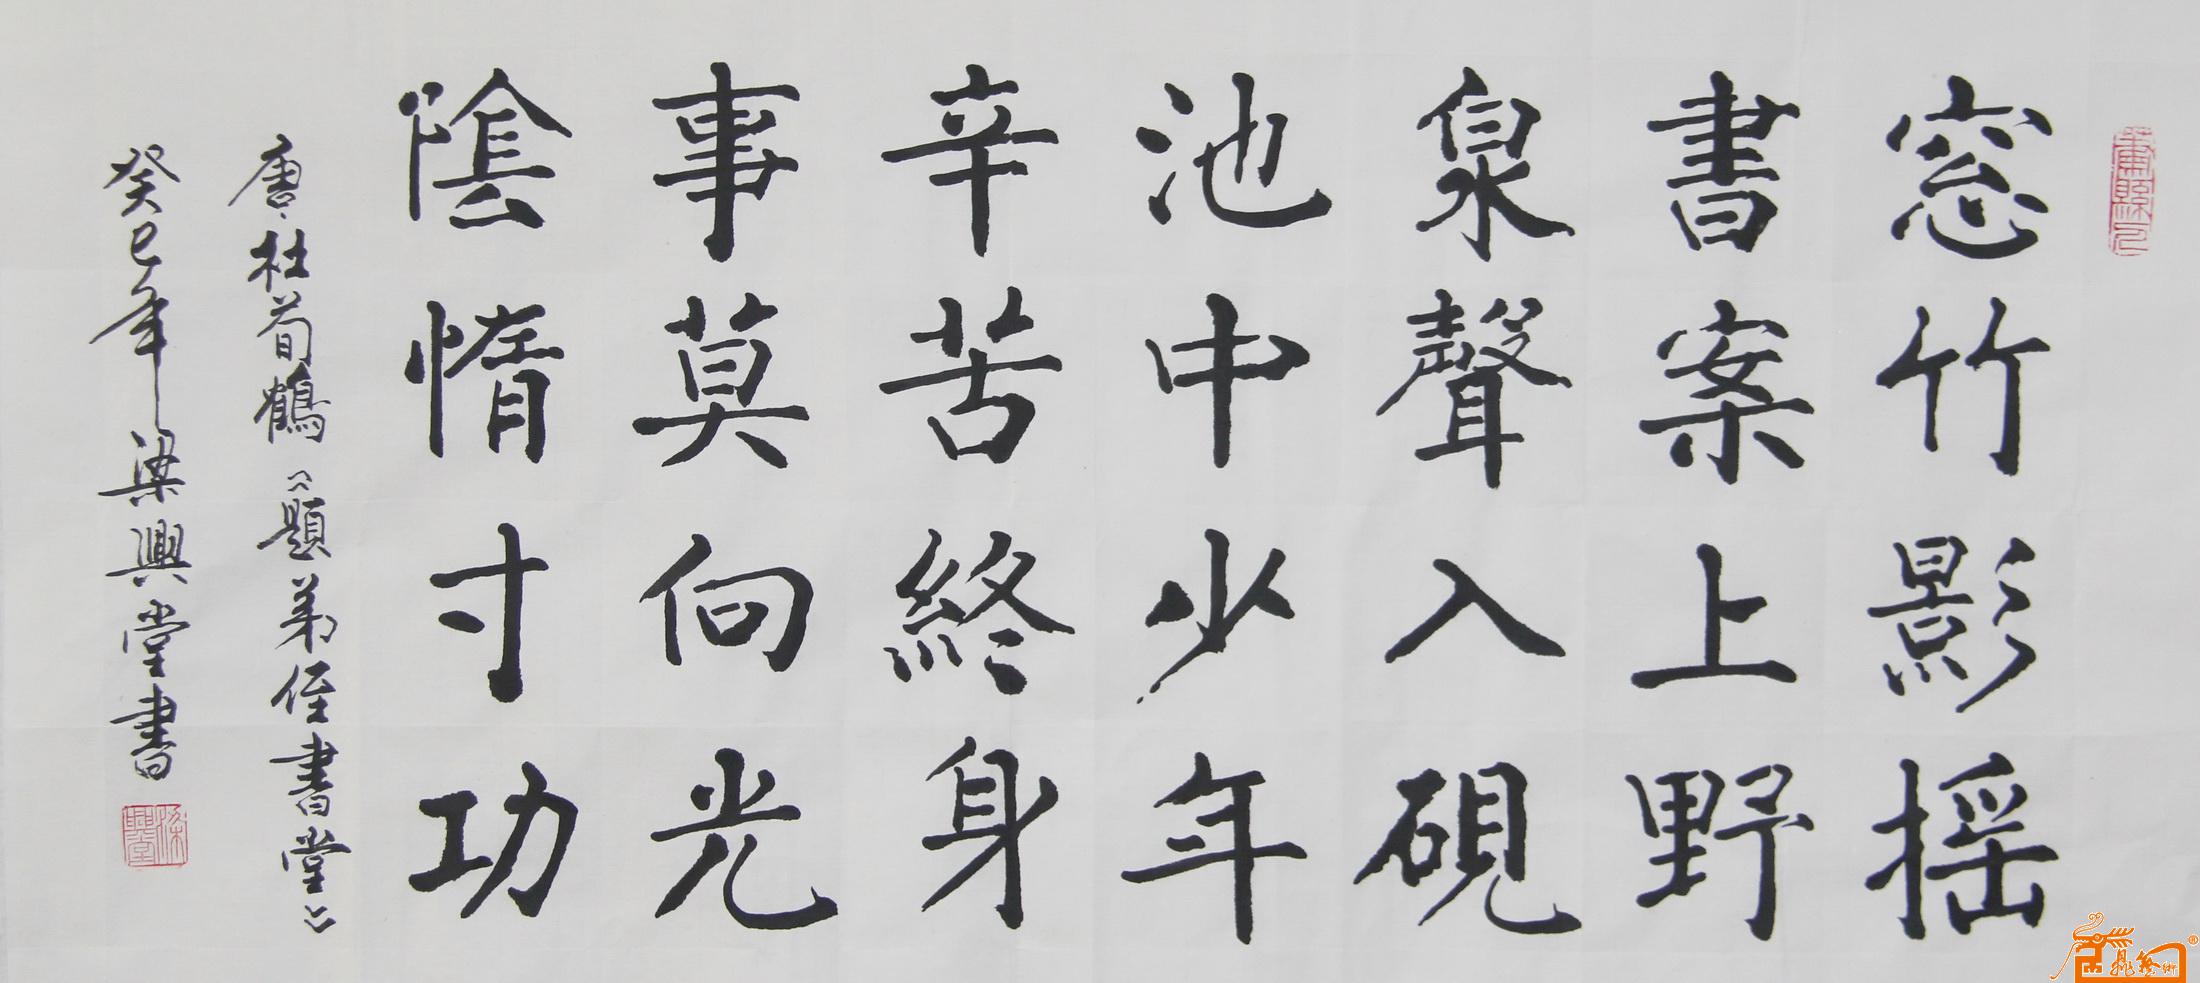 窓竹影摇
書案上野
泉聲入硯
池中少年
辛苦終身
事莫向光
陰惰寸功
唐·杜荀鶴《題弟侄書堂》
癸巳年梁興堂書